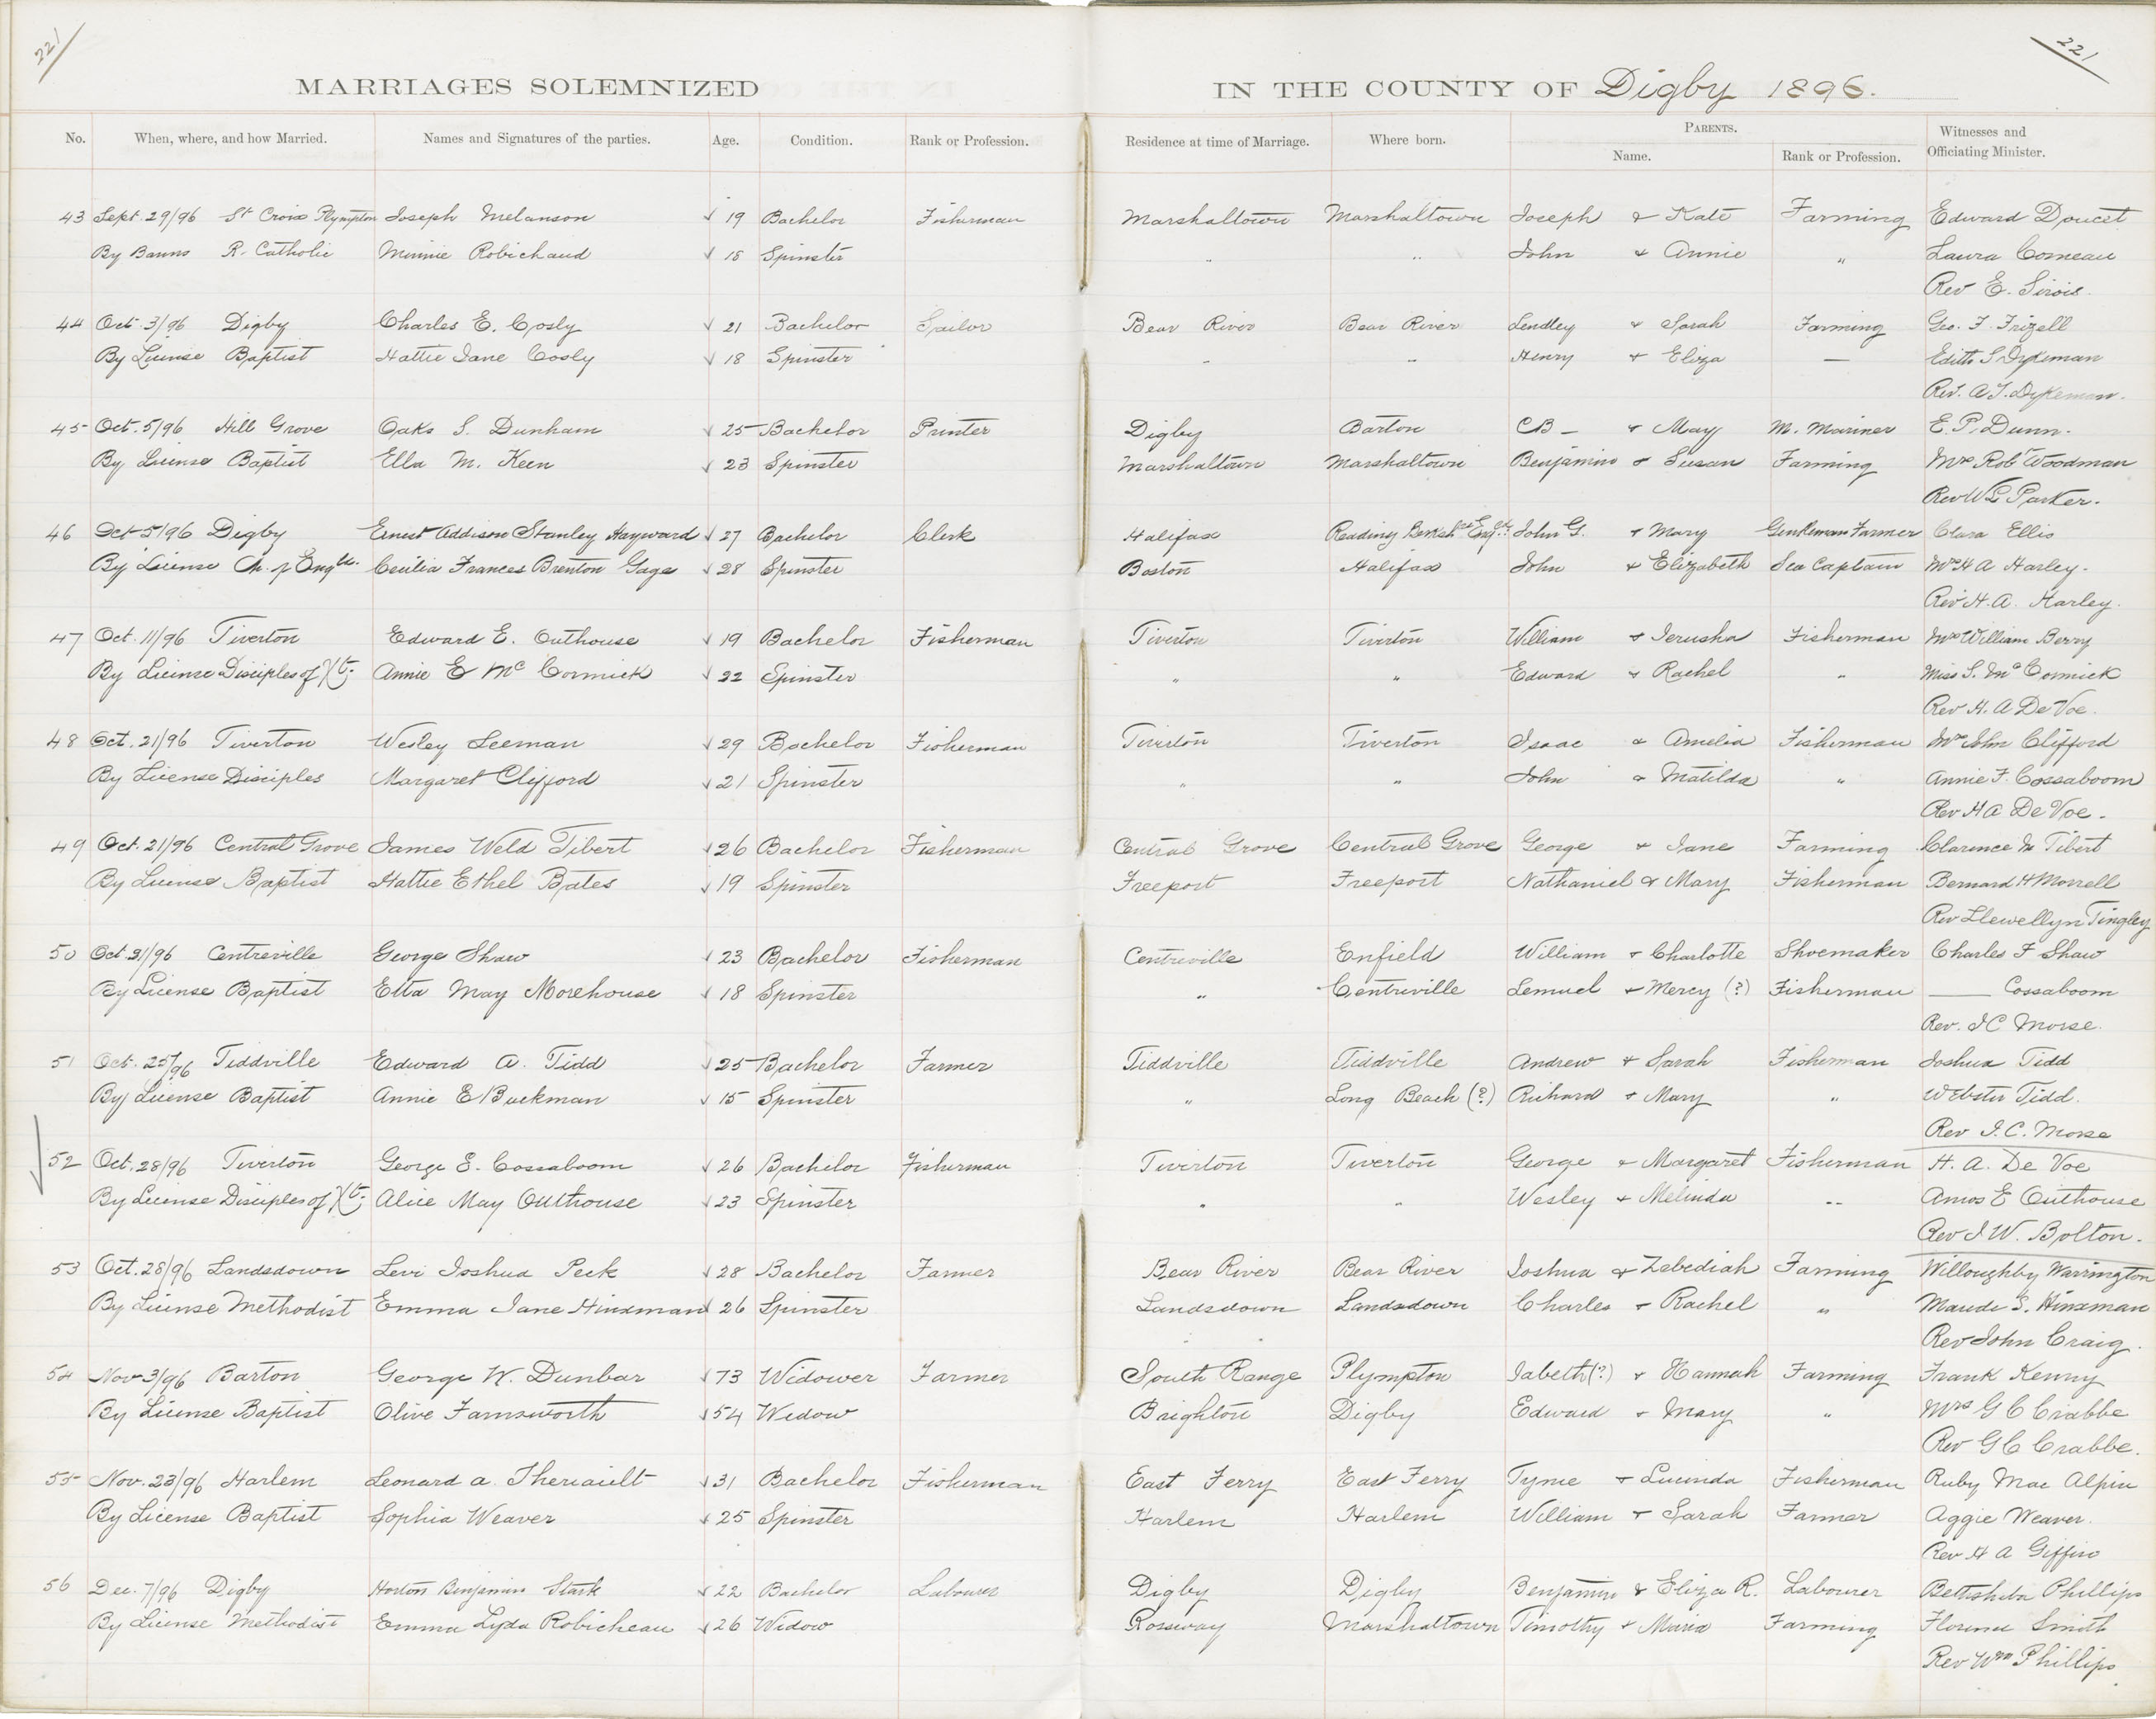 221
221
MARRIAGES SOLEMNIZED IN THE COUNTY OF Digby 1896.
No. When, where, and how Married. Names and Signatures of the parties. Age. Condition. Rank or Profession. Residence at time of Marriage. Where born. PARENTS. Name. Rank or Profession. Witnesses and Officiating Minister.
43 Sept. 29/96 St Croix Plympton Joseph Melanson √ 19 Bachelor Fisherman Marshaltown Marshaltown Joseph & Kate Farming Edward Doucet
By Banns R. Catholic Minnie Robichaud √ 18 Spinster " " John & Annie " Laura Comeau
Rev E. Sirois.
44 Oct. 3/96 Digby Charles E. Cosly √ 21 Bachelor Sailor Bear River Bear River Lendley & Sarah Farming Geo. F. Frizell
By License Baptist Hattie Jane Cosly √ 18 Spinster " " Henry & Eliza — Edith S Dykeman
Rev. A.T. Dykeman.
45 Oct. 5/96 Hill Grove Oaks S. Dunham √ 25 Bachelor Printer Digby Barton CB — & May M. Mariner E. P. Dunn.
By License Baptist Ella M. Keen √ 23 Spinster Marshaltown Marshaltown Benjamin & Susan Farming Mrs Robt Woodman
Rev W L Parker.
46 Oct 5/96 Digby Ernest Addison Stanley Hayward √ 27 Bachelor Clerk Halifax Reading Berksh're Eng'd. John G. & Mary Gentleman Farmer Clara Ellis
By License Ch. of Engld. Cecilia Frances Brenton Gage √ 28 Spinster Boston Halifax John & Elizabeth Sea Captain Mrs H A Harley.
Rev H. A. Harley.
47 Oct. 11/96 Tiverton Edward E. Outhouse √ 19 Bachelor Fisherman Tiverton Tiverton William & Jerusha Fisherman Mrs William Berry
By License Disciples of Xt. Annie E Mc Cormick √ 22 Spinster " " Edward & Rachel " Miss S. Mc Cormick
Rev H. A De Voe.
48 Oct. 21/96 Tiverton Wesley Leeman √ 29 Bachelor Fisherman Tiverton Tiverton Isaac & Amelia Fisherman Mrs John Clifford
By License Disciples Margaret Clifford √ 21 Spinster " " John & Matilda " Annie F. Cossaboom
Rev H A De Voe.
49 Oct. 21/96 Central Grove James Weld Tibert √ 26 Bachelor Fisherman Central Grove Central Grove George & Jane Farming Clarence M Tibert
By License Baptist Hattie Ethel Bates √ 19 Spinster Freeport Freeport Nathaniel & Mary Fisherman Bernard H Morrell
Rev Llewellyn Tingley
50 Oct. 21/96 Centreville George Shaw √ 23 Bachelor Fisherman Centreville Enfield William & Charlotte Shoemaker Charles F Shaw
By License Baptist Etta May Morehouse √ 18 Spinster " Centreville Lemuel & Mercy (?) Fisherman —— Cossaboom
Rev. J C Morse.
51 Oct. 25/96 Tiddville Edward A. Tidd √ 25 Bachelor Farmer Tiddville Tiddville Andrew & Sarah Fisherman Joshua Tidd
By License Baptist Annie E Buckman √ 15 Spinster " Long Beach (?) Richard & Mary " Webster Tidd.
Rev J. C. Morse
52 Oct. 28/96 Tiverton George E. Cossaboom √ 26 Bachelor Fisherman Tiverton Tiverton George & Margaret Fisherman H. A. De Voe
By License Disciples of Xt. Alice May Outhouse √ 23 Spinster " " Wesley & Melinda " Amos E Outhouse
Rev J W. Bolton.
53 Oct. 28/96 Landsdown Levi Joshua Peck √ 28 Bachelor Farmer Bear River Bear River Joshua & Zebediah Farming Willoughby Warrington
By License Methodist Emma Jane Hinxman √ 26 Spinster Landsdown Landsdown Charles & Rachel " Maude S. Hinxman
Rev John Craig.
54 Nov 3/96 Barton George W. Dunbar √ 73 Widower Farmer South Range Plympton Jabeth (?) & Hannah Farming Frank Kenny
By License Baptist Olive Farnsworth √ 54 Widow Brighton Digby Edward & Mary " Mrs G C Crabbe
Rev G C Crabbe.
55 Nov. 23/96 Harlem Leonard A. Theriault √ 31 Bachelor Fisherman East Ferry East Ferry Tyme & Lucinda Fisherman Ruby Mac Alpin
By License Baptist Sophia Weaver √ 25 Spinster Harlem Harlem William & Sarah Farmer Aggie Weaver.
Rev H A Giffin
56 Dec. 7/96 Digby Horton Benjamin Stark √ 22 Bachelor Labourer Digby Digby Benjamin & Eliza R. Labourer Bethsheba Phillips
By License Methodist Emma Lyda Robicheau √ 26 Widow Rossway Marshaltown Timothy & Maria Farming Florence Smith
Rev Wm Phillips.